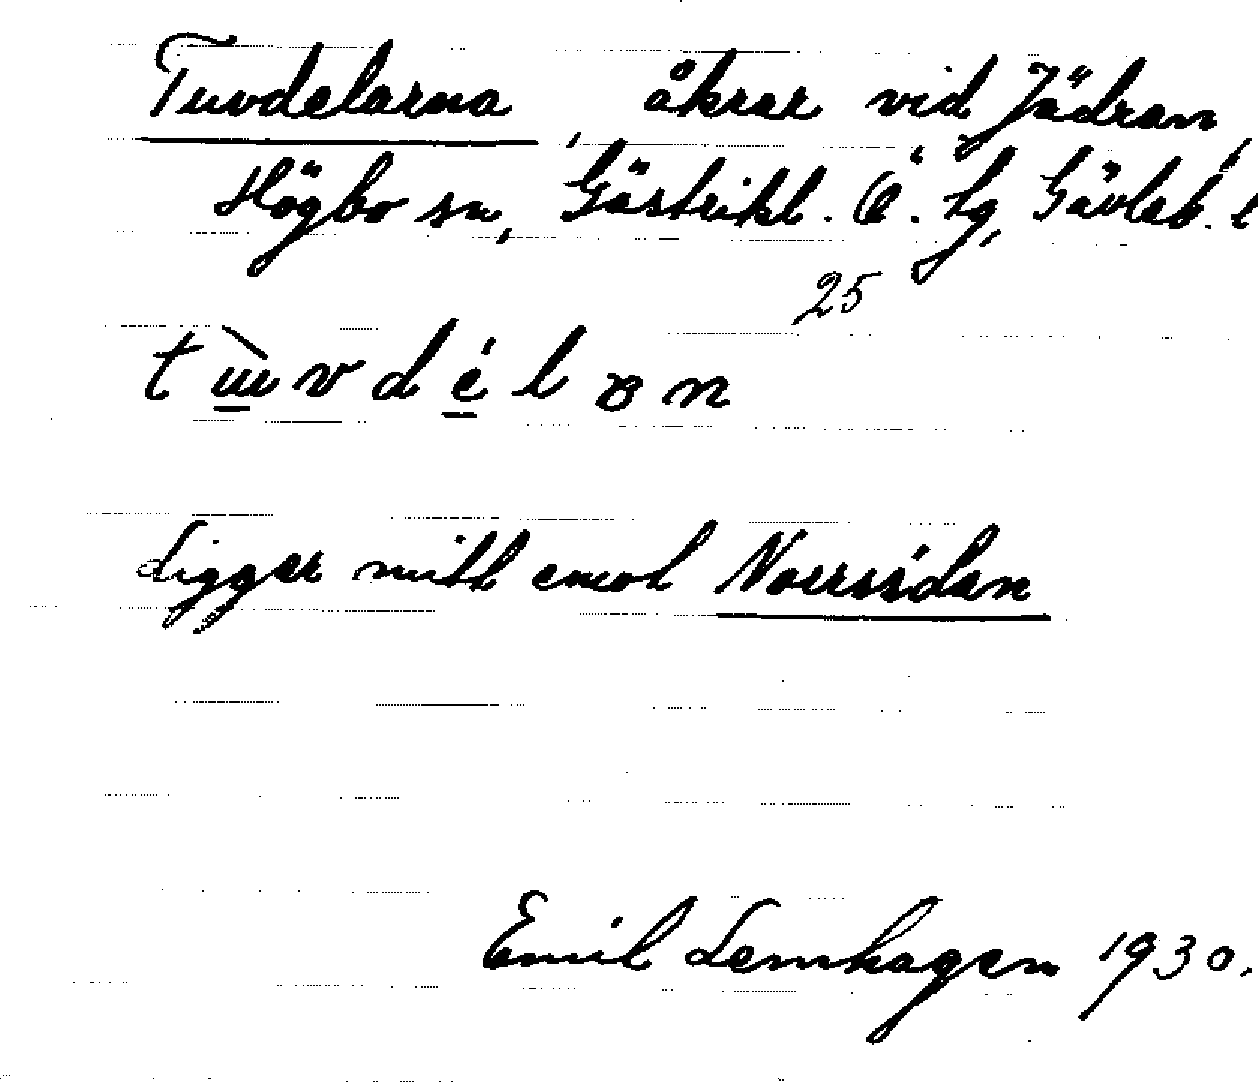 Tuvdelarna, åkrar vid Jädran,
Högbo sn, Gästrikl. Ö. tg, Gävleb. l
25
Ligger mitt emot Norrsidan
Emil Lennhagen 1930.